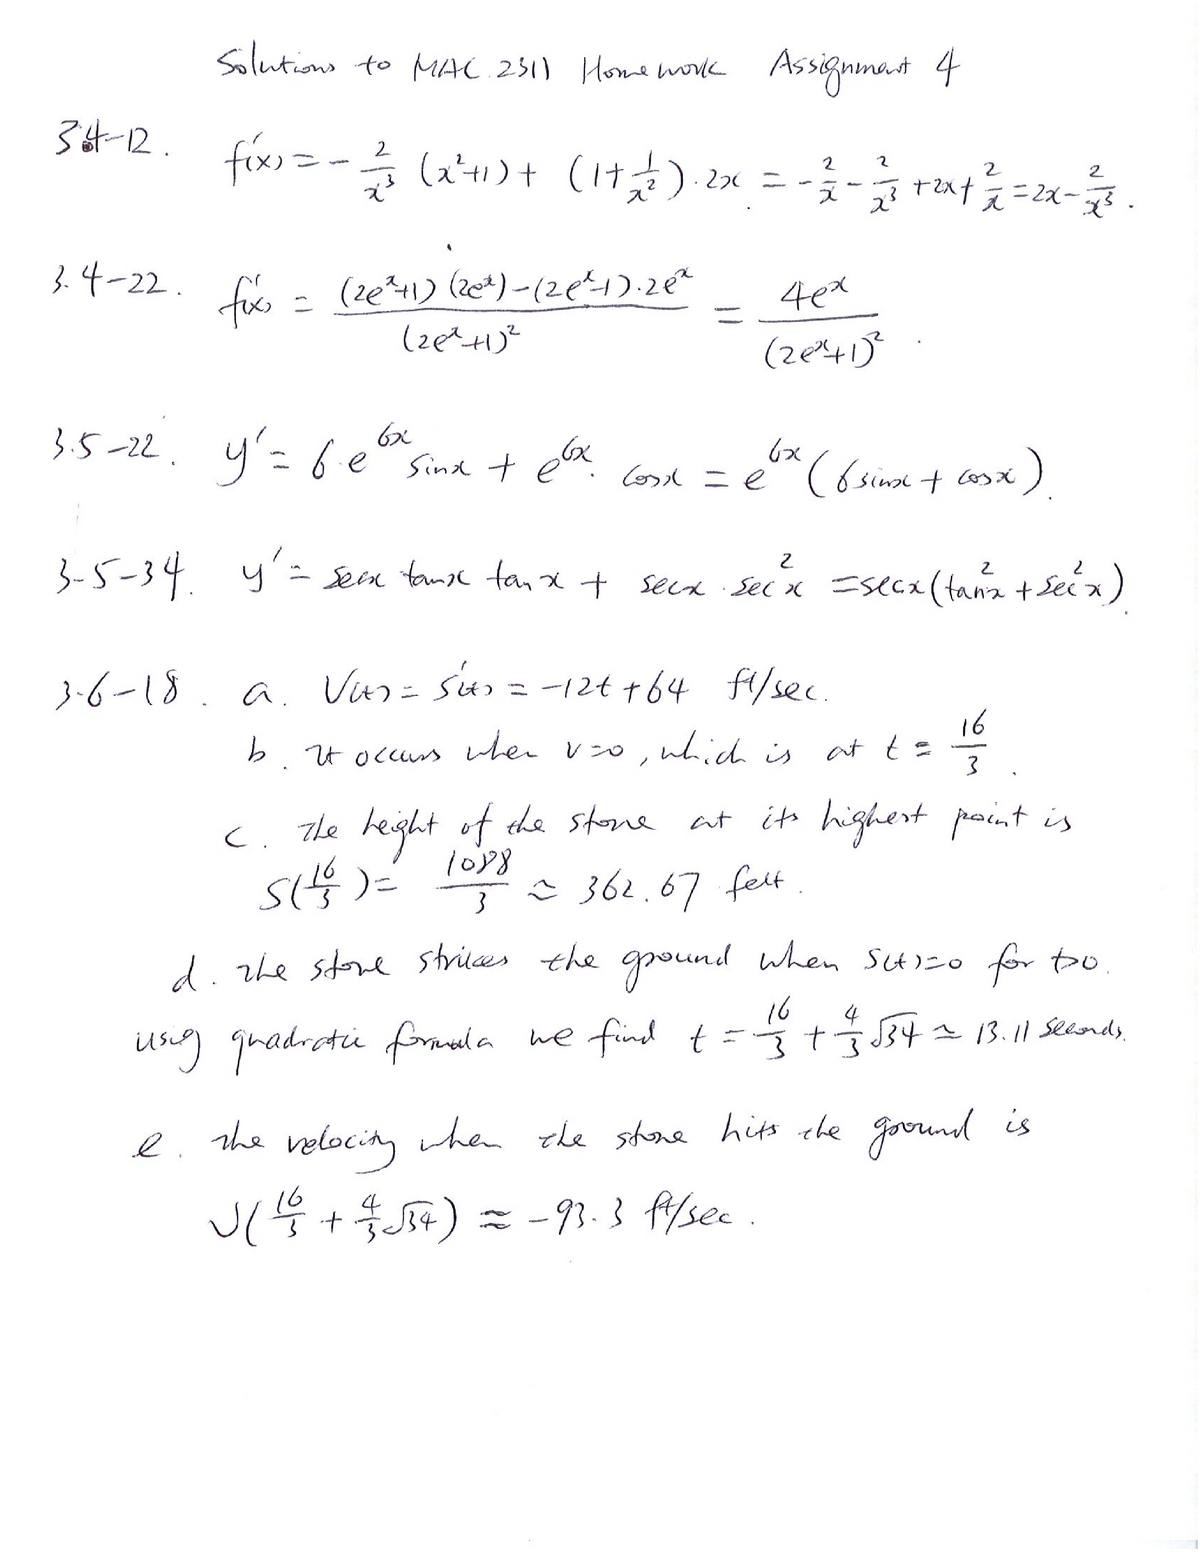 Solutions to MAC 2311 Homework Assignment 4
3.4-12. f'(x) = - 2/x³ (x²+1) + (1 + 1/x²) · 2x = - 2/x - 2/x³ + 2x + 2/x = 2x - 2/x³ .
3.4-22. f'(x) = ((2eˣ+1)(2eˣ) - (2eˣ-1)·2eˣ)/(2eˣ+1)² = 4eˣ/(2eˣ+1)² .
3.5-22. y' = 6·e⁶ˣ sinx + e⁶ˣ · cosx = e⁶ˣ (6 sinx + cosx).
3-5-34. y' = secx tanx tanx + secx · sec²x = secx(tan²x + sec²x).
3-6-18. a. V(t) = S'(t) = -12t + 64 ft/sec.
b. It occurs when v=0, which is at t = 16/3 .
c. The height of the stone at its highest point is
S(16/3) = 1088/3 ≈ 362.67 feet.
d. The stone strikes the ground when S(t)=0 for t>0.
using quadratic formula we find t = 16/3 + 4/3 √34 ≈ 13.11 seconds.
e. The velocity when the stone hits the ground is
V(16/3 + 4/3 √34) ≈ -93.3 ft/sec.